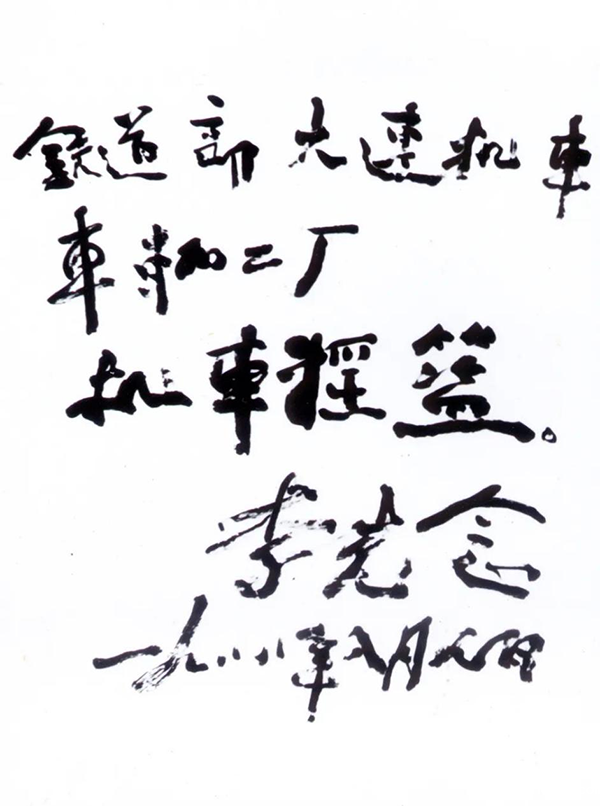 鉄道部大連机車
車輌工厂
机車摇篮。
李先念
一九八八年八月 日